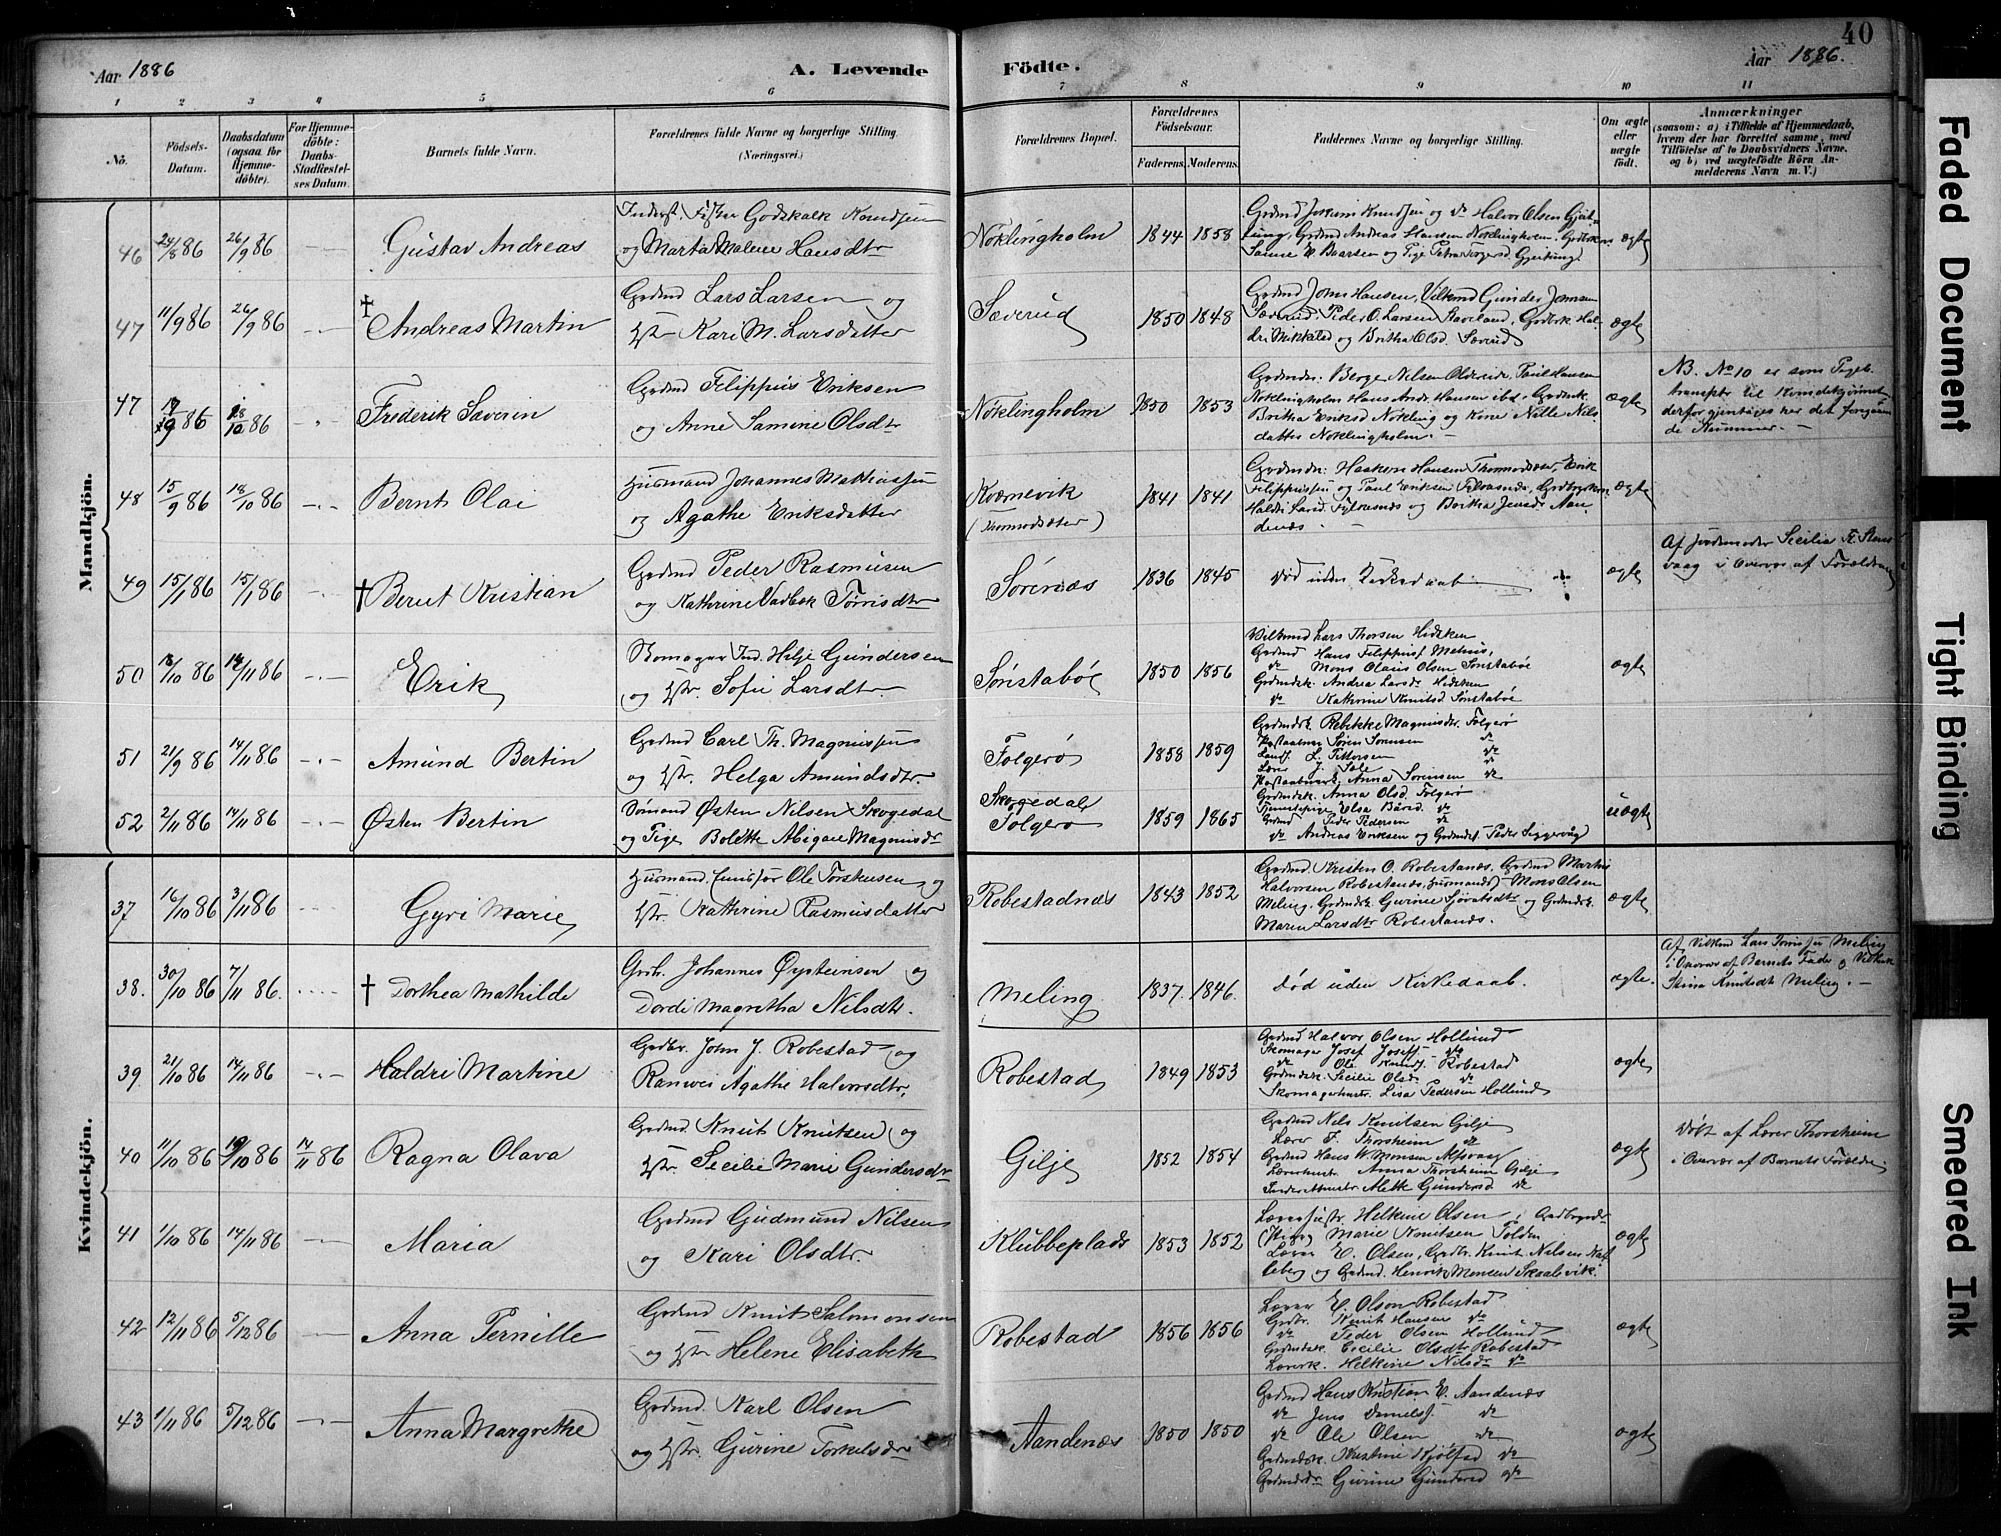 Aar 1886
A. Levende
Födte.
Aar 1886.
40
1 2 3 4 5 6 7 8 9 10 11
No.
Födsels-
Datum.
Daabsdatum
(ogsaa for
Hjemme-
döbte).
For Hjemme-
döbte:
Daabs-
Stadfæstel-
ses Datum.
Barnets fulde Navn.
Forældrenes fulde Navne og borgerlige Stilling.
(Næringsvei.)
Forældrenes Bopæl.
Forældrenes
Födselsaar.
Faderens.
Moderens.
Faddernes Navne og borgerlige Stilling.
Om ægte
eller
uægte
födt.
Anmærkninger
(saasom: a) i Tilfælde af Hjemmedaab,
hvem der har forrettet samme, med
Tilföielse af to Daabsvidners Navne.
og b) ved uægtefödte Börn An-
melderens Navn m. V.)
Mandkjön.
46 24/8 86 26/9 86 Gustav Andreas
Inderst. Fisker Godskalk Knudsen
og Marta Malene Hansdtr
Nøklingholm 1844 1858
Grdmd Joakim Knudsen og do Halvor Olsen Gjert-
tung, Grdmd Andreas Hansen Nøklingholm, Grdbrkns
ægte
47 11/9 86 26/9 86 † Andreas Martin
Grdmd Lars Larsen og
Hstr Kari M. Larsdatter
Sæverud 1850 1848
Grdmd John Hansen, Ungkmd Gunder Johnsen
Sæverud Peder O. Larsen
og Britha Olsd. Sæverud
ægte
47 86 18/10 86 Frederik Saverin
Grdmd Filippus Eriksen
og Anne Samine Olsdtr
Nøklingholm 1850 1853
Grdmdr: Berge Nilsen Paul Hansen
Nøklingholm Hans Andr. Hansen ibd., Grdmk.
Britha Eriksd Nøkling og Kone Nille Nils
datter Nøklingholm. -
ægte
NB. No 10 er som Pigeb.
transptr til Kvindekjønnet
derfor gjentages her det foregaaen
de Nummer. -
48 15/9 86 18/10 86 Bernt Olai
Husmand Johannes Mathiassen
og Agathe Eriksdatter
Kvernevik
(Thormodsæter)
1841 1841
Grdmdr: Haakon Hansen Thormodsæter, Erik
Filippussen og Paul Eriksen Fylkesnæs, Grdbrgkone
Haldri Larsd. Fylkesnæs og Britha Jensdr Aan-
denæs.
ægte
49 15/1 86 15/1 86 † Bernt Kristian
Grdmd Peder Rasmusen
og Kathrine Tørrisdtr
Sørenæs 1836 1845
død uden Kirkedaab
ægte
Af Jordemoder Secilia
i Overvær af Forældrene
50 86 14/11 86 Erik
Skomager Ind. Helje Gundersen
og Hstr. Sofie Larsdtr
Sønstabøe 1850 1856
Ungkmd Lars Thorsen Hidsken
Grdmd Hans Filippus.
do Mons Olaus Olsen Sønstabøe
Grdmdsk. Andrea Larsdr Hidsken
do Kathrine Knutsd. Sønstabøe
ægte
51 21/9 86 14/11 86 Amund Bertin
Grdmd Carl Th. Magnussen
og Hstr. Helga Amundsdtr.
Folgerø 1858 1859
Grdmdsk. Rebekke Magnusdr. Folgerø
Søren Sørensen do
Landh. L. Pettersen do
Lærer J. Sæle do
Anna Sørensen do
52 2/11 86 14/11 86 Østen Bertin
Sømand Østen Nilsen Skogedal
og Pige Bolette Abigael Magnusdr
Skogedal
Folgerø
1859 1865
Grdmdsk. Anna Olsd. Folgerø
Tjenestepige Elsa do
Grdmd Peder Pedersen do
do Andreas Eriksen og Grdmdsf. Peder Siggervåg
uægte
Kvindekjön.
37 16/10 86 3/11 86 Gyri Marie
Husmand. Ole Torstensen og
Hstr. Kathrine Rasmusdatter
Robestadnæs 1843 1852
Grdmd Kristen O. Robestadnæs, Grdmd Martin
Halvorsen Robestadnæs, Husmands. Mons Olsen
Meling. Grdmdsk. Gurine Sjovatsdtr og Grdmdsk.
Maren Larsdtr Robestadnæs.
ægte
38. 30/10 86 7/11 86. † Dorthea Mathilde
Grbr. Johannes Øysteinsen og
Dordi Magretha Nilsdtr.
Meling 1837. 1846.
død uden Kirkedaab.
ægte.
Af Ungkmd Lars Tørrissen Meling
i Overvær af Barnets Fader og
Stina Knutsdt Meling. -
39 21/10 86 14/11 86 Haldri Martine
Grdbr. John J. Robestad og
Ranvei Agathe Halvorsdtr,
Robestad 1849 1853
Grdmd Halvor Olsen Hollund
Skomager Josef Josefs. do
do Ole Knuds. Robestad
Grdmdsk. Secilie Olsd. do
Skomagerhustr. Lisa Pedersen Hollund
ægte
40 11/10 86 19/10 86 14/11 86 Ragna Olava
Grdmd. Knut Knutsen og
Hstr. Secilie Marie Gundersdtr
Gilje 1852 1854
Grdmd Nels Knutsen Gilje
Lærer F. Thorsheim do
Grdmd Hans W. Monsen Alfsvaag
Lærerhustr. Anna Thorsheim Gilje
Alette Gundersd. do
ægte
Døbt af Lærer Thorsheim
i Overvær af Barnets Forældre
41 1/10 86 14/11 86 Maria
Grdmd Gudmund Nilsen
og Kari Olsdtr.
Klubbeplads 1853 1852
Lærerhustr Helkine Olsen,
Marie Knutsen Folden
Lærer E. Olsen, Grdbr. Knut Nilsen
og Grdmd. Henrik Monsen Skaalevik.
ægte
42 12/11 86 5/12 86 Anna Pernille
Grdmd Knut Salomonsen
og Hstr Helene Elisabeth
Robestad 1856 1856
Lærer E. Olsen Robestad
Grdbr. Knut Hansen do
do Peder Olsen Hollund
Grdmdsk. Cecilie Olsdtr Robestad
Lærerk. Helkine Nilsdr do
ægte
43 1/11 86 5/12 86 Anna Margrethe
Grdmd. Karl Olsen
og Hstr. Gurine Torkelsdr
Aandenæs 1850 1850
Grdmd Hans Kristian E. Aandenæs
do Jens Danielsf. do
do Ole Olsen do
Grdmdsk. Kristine Kjølsad do
Grdmdsdr Gurine Gundersd do
ægte
Faded Document
Tight Binding
Smeared Ink